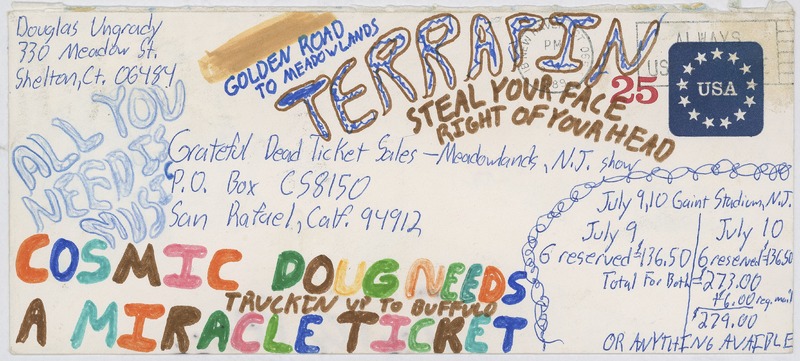 Douglas Ungrady
330 Meadow St.
Shelton, Ct. 06484
GOLDEN ROAD
TO MEADOWLANDS
TERRAPIN
STEAL YOUR FACE
RIGHT OF YOUR HEAD
PM
ALWAYS
US
25
USA
ALL YOU
NEED IS
Grateful Dead Ticket Sales - Meadowlands, N.J. show
P.O. Box CS8150
San Rafael, Calf. 94912
July 9,10 Gaint Stadium, N.J.
July 9
6 reserved $136.50
July 10
6 reserved $136.50
Total For Both = 273.00
+6.00 reg. mail
$279.00
OR ANYTHING AVAIBLE
COSMIC DOUG NEEDS
TRUCKEN UP TO BUFFULO
A MIRACLE TICKET